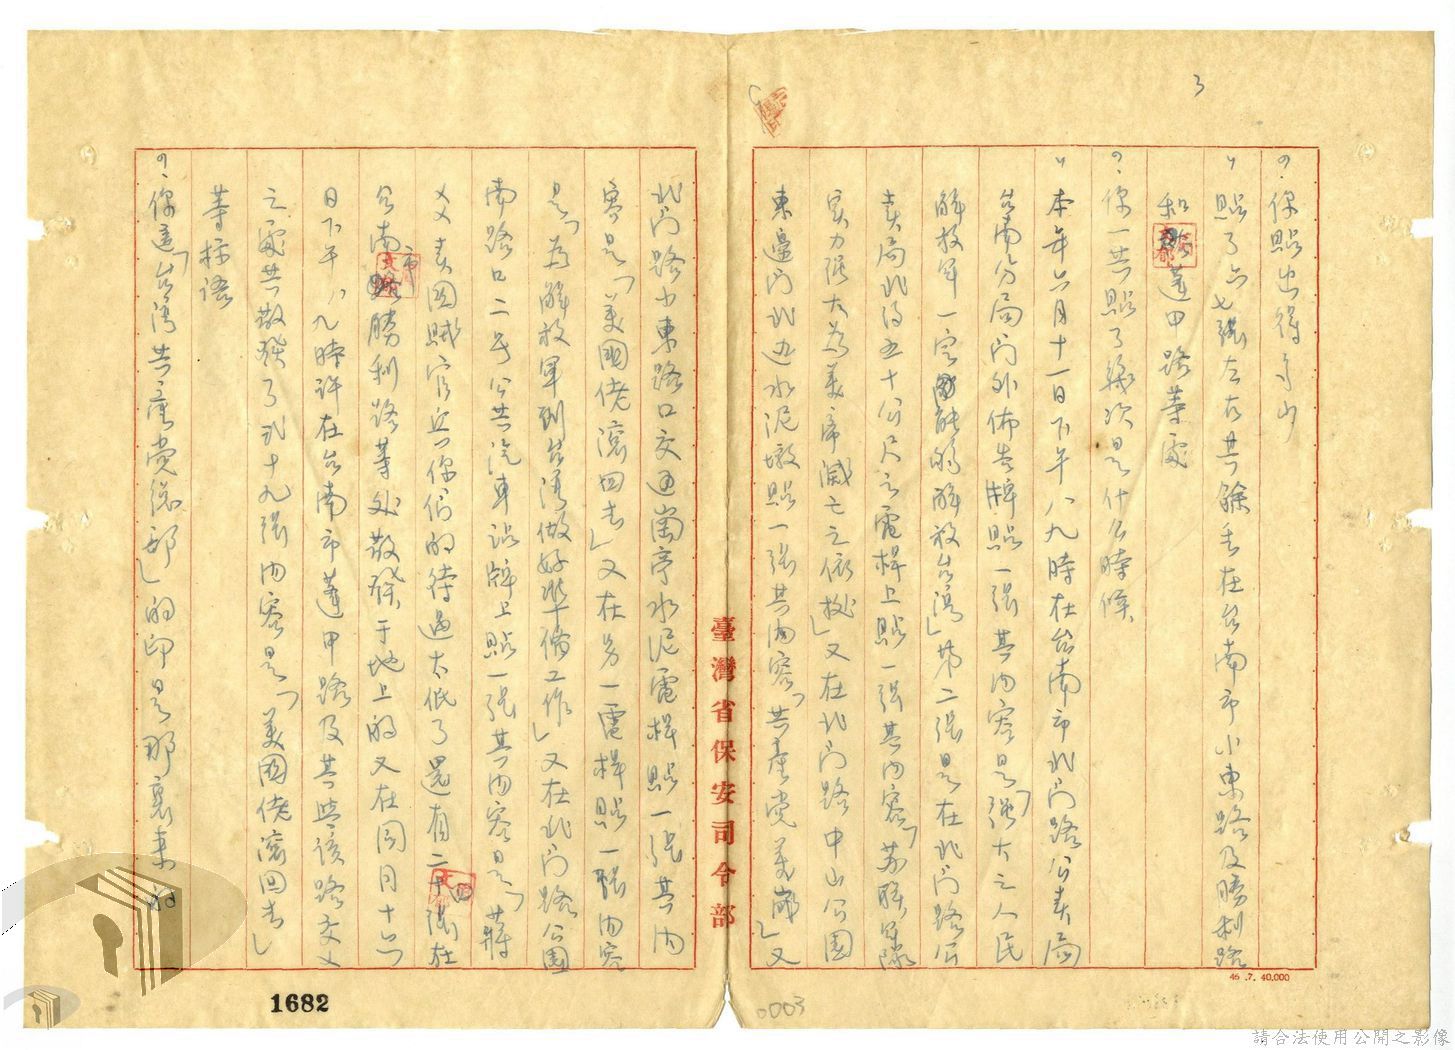 3
你點出得多少
點了六七張左右其餘丟在台南市小東路及勝利路
和逢甲路等處
你一共點了幾次是什么時候
本年六月十一日下午八九時在台南市北门路公賣局
台南分局门外佈告牌點一張其内容是「強大之人民
解放軍一定能够解放台湾」第二張是在北门路公
賣局北约五十公尺之電桿上點一張其内容「苏联軍隊
实力强大為美帝滅亡之依據」又在北门路中山公園
東邊门北边水泥墩點一張其内容「共產党美歲」又
北门路小東路口交通崗亭水泥電桿點一張其内
容是「美國佬滾回去」又在另一電桿點一張内容
是「為解放軍到台湾做好準備工作」又在北门路公園
南路口二号公共汽車站牌上點一張其内容是「蔣
××賣国賊官兵你們的待遇太低了還有二十四張在
台南市勝利路等处散發于地上的又在同月十六
日下午八九時許在台南市逢甲路及其與該路交叉
之處共散發了式十九張内容是「美國佬滾回去」
等标語
你這「台湾共產党總部」的印是那裏来的
臺灣省保安司令部
46.7. 40,000
1682
0003
請合法使用公開之影像